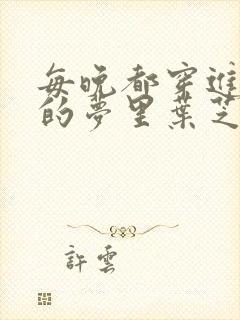 每晚都穿進
的夢里葉芝
許雲